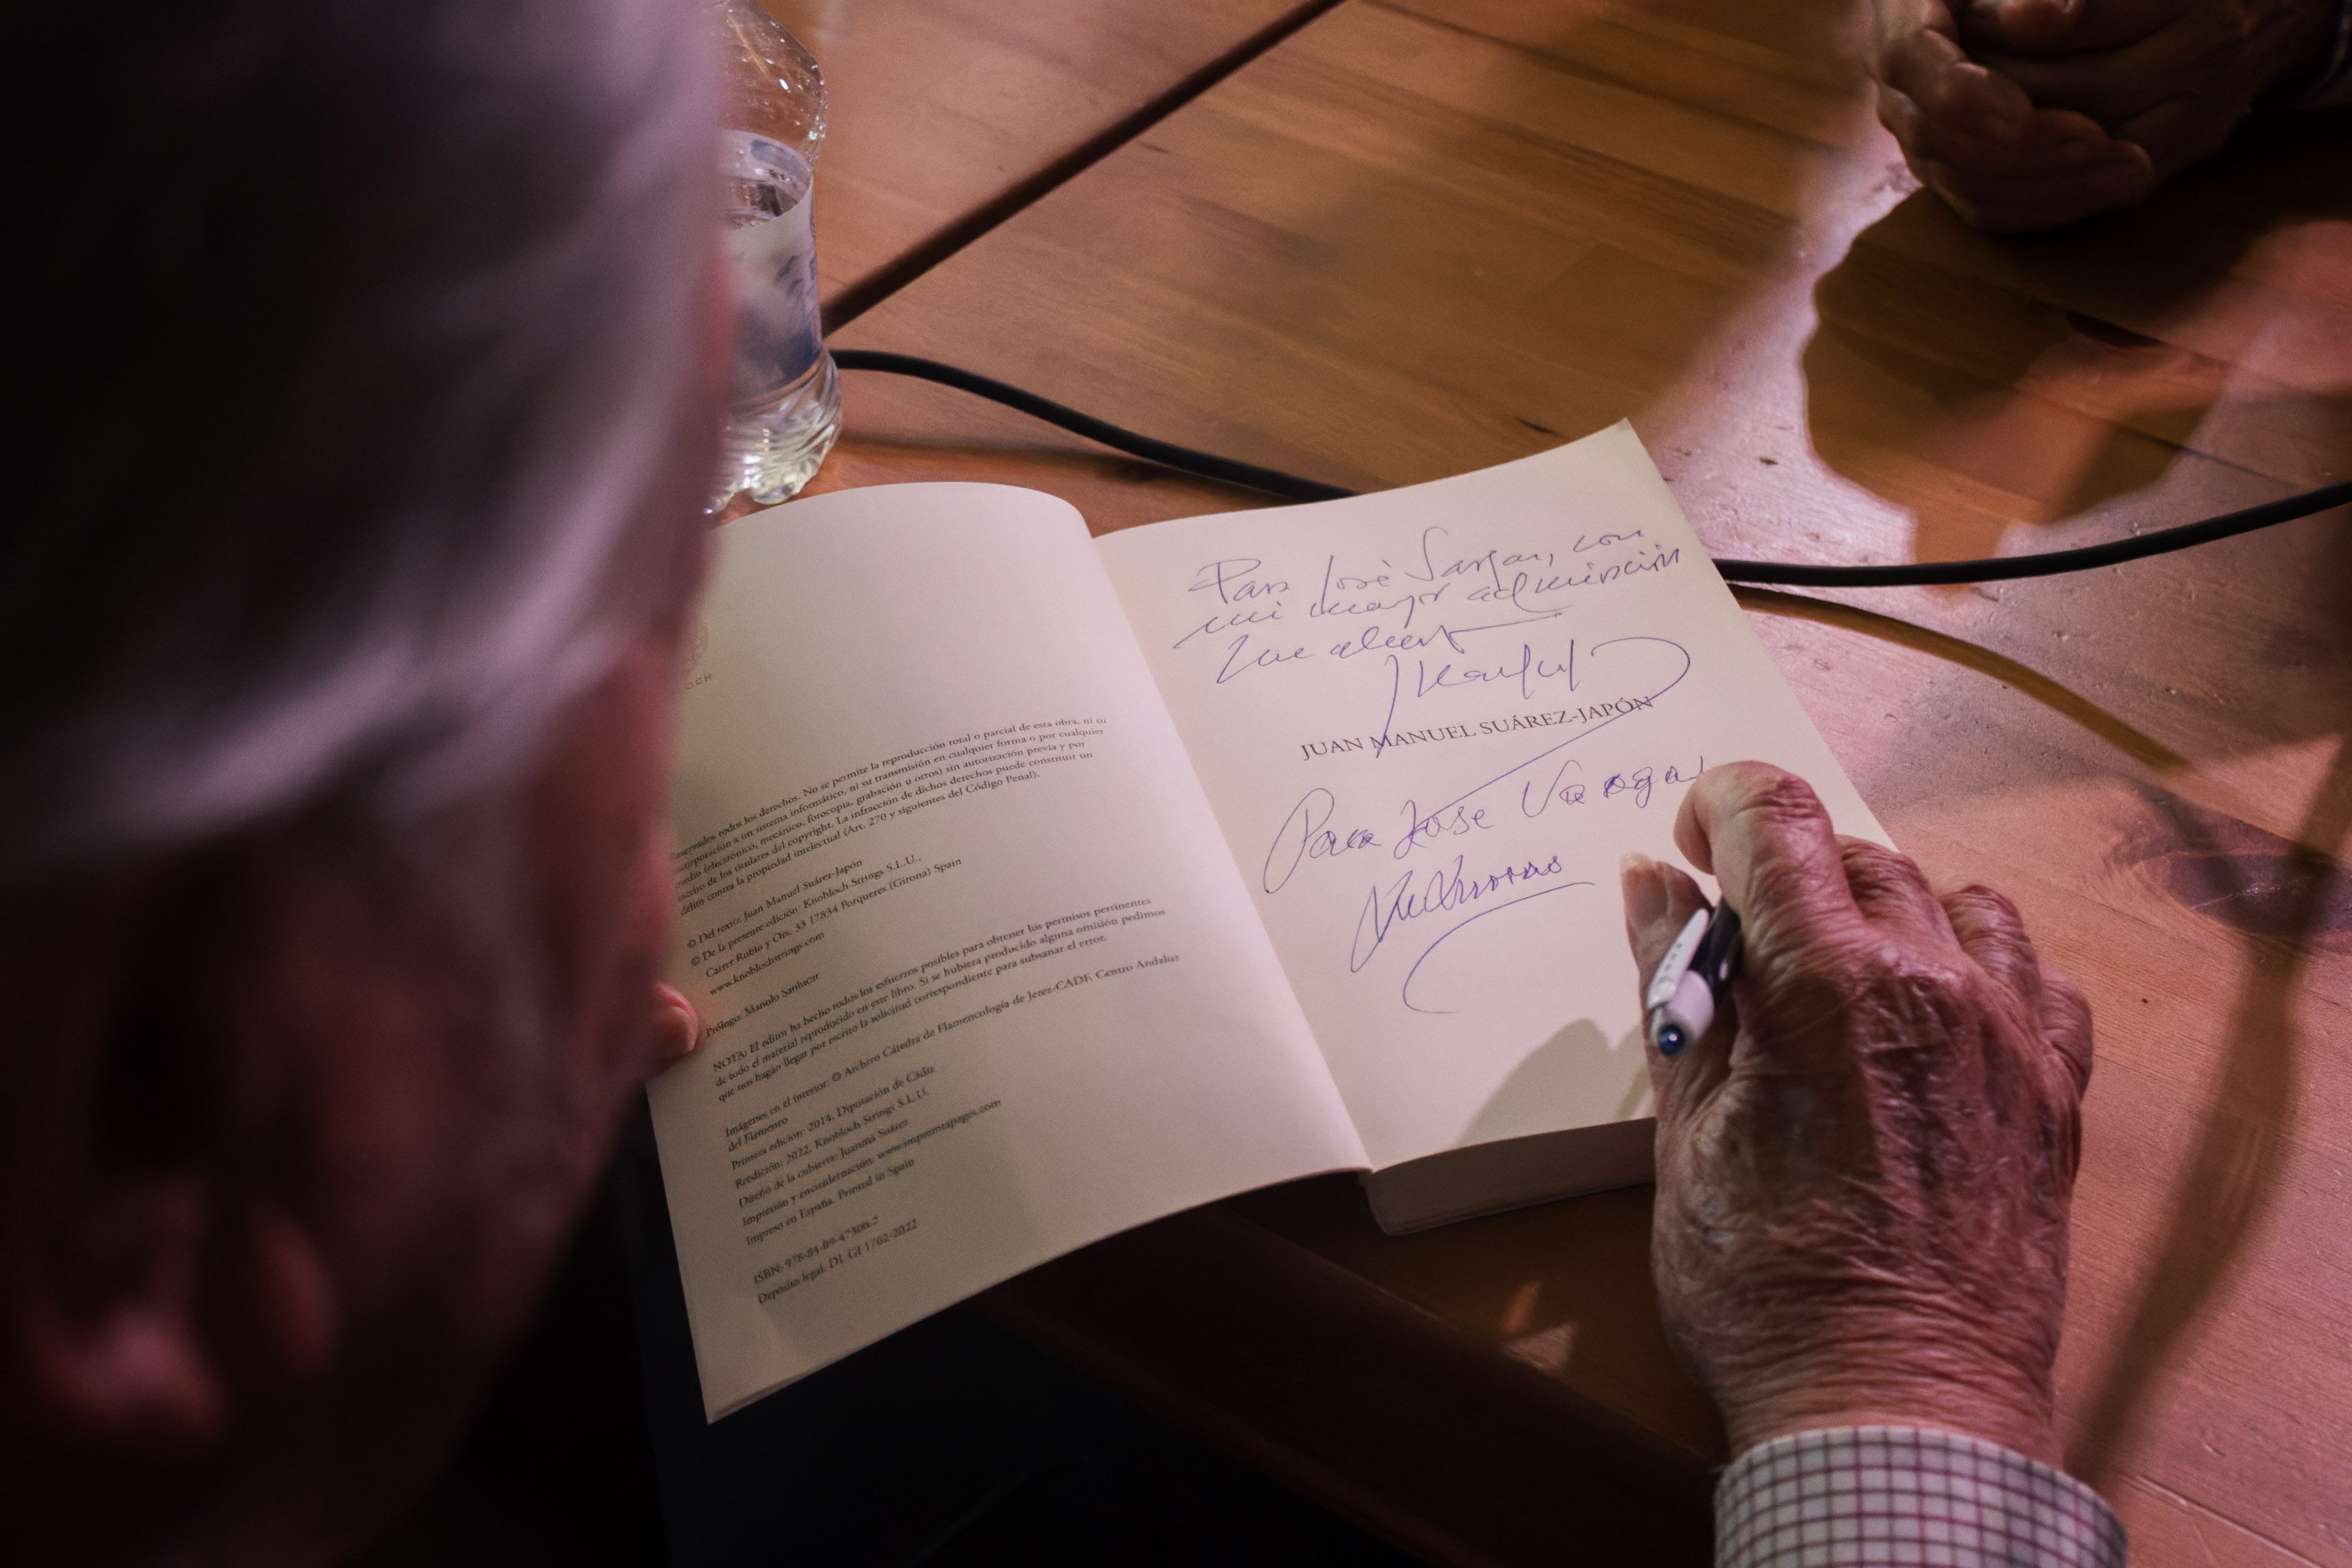 LOCH
Reservados todos los derechos. No se permite la reproducción total o parcial de esta obra, ni su
incorporación a un sistema informático, ni su transmisión en cualquier forma o por cualquier
medio (electrónico, mecánico, fotocopia, grabación u otros) sin autorización previa y por
escrito de los titulares del copyright. La infracción de dichos derechos puede constituir un
delito contra la propiedad intelectual (Art. 270 y siguientes del Código Penal).
© Del texto: Juan Manuel Suárez-Japón
© De la presente edición: Knobloch Strings S.L.U.,
Carrer Rubio y Ors, 33 17834 Porqueres (Girona) Spain
www.knoblochstrings.com
Prólogo: Manolo Sanlúcar
NOTA: El editor ha hecho todos los esfuerzos posibles para obtener los permisos pertinentes
de todo el material reproducido en este libro. Si se hubiera producido alguna omisión pedimos
que nos hagan llegar por escrito la solicitud correspondiente para subsanar el error.
Imágenes en el interior: © Archivo Cátedra de Flamencología de Jerez-CADF, Centro Andaluz
del Flamenco
Primera edición: 2014, Diputación de Cádiz
Reedición: 2022, Knobloch Strings S.L.U.
Diseño de la cubierta: Juanma Suárez
Impresión y encuadernación: www.imprentapages.com
Impreso en España. Printed in Spain
ISBN: 978-84-09-47306-7
Depósito legal: DL GI 1762-2022
Para José Vargas, con
mi mayor admiración
JUAN MANUEL SUÁREZ-JAPÓN
Para Jose Vargas